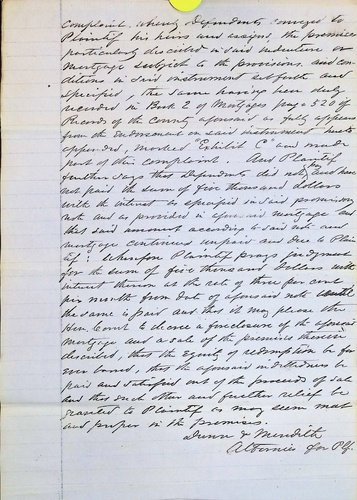 complaint, whereby Defendants conveyed to
Plaintiff his heirs and assigns, the premises
particularly described in said indenture or
Mortgage subject to the provisions and con-
ditions in said instrument set forth and
specified, the same having been duly
recorded in Book 2 of Mortgages page 520 of
Records of the County aforesaid as fully appears
from the Endorsement on said instrument hereto
appended, marked "Exhibit C" and made
part of this complaint. And Plaintiff
further says that Defendants did not and have
not paid the sum of five thousand dollars
with the interest as specified in said promissory
note and as provided in aforesaid mortgage and
that said amount according to said note and
mortgage continues unpaid and due to Plain-
tiff: Wherefore Plaintiff prays judgment
for the sum of five thousand dollars with
interest thereon at the rate of three per cent
per month from date of aforesaid note until
the same is paid and that it may please the
Hon. Court to decree a foreclosure of the aforesaid
mortgage and a sale of the premises therein
described, that the equity of redemption be for
ever barred, that the aforesaid indebtedness be
paid and satisfied out of the proceeds of sale
and that such other and further relief be
granted to Plaintiff as may seem meet
and proper in the premises.
Dunn & Meredith
Attornies for Plf.